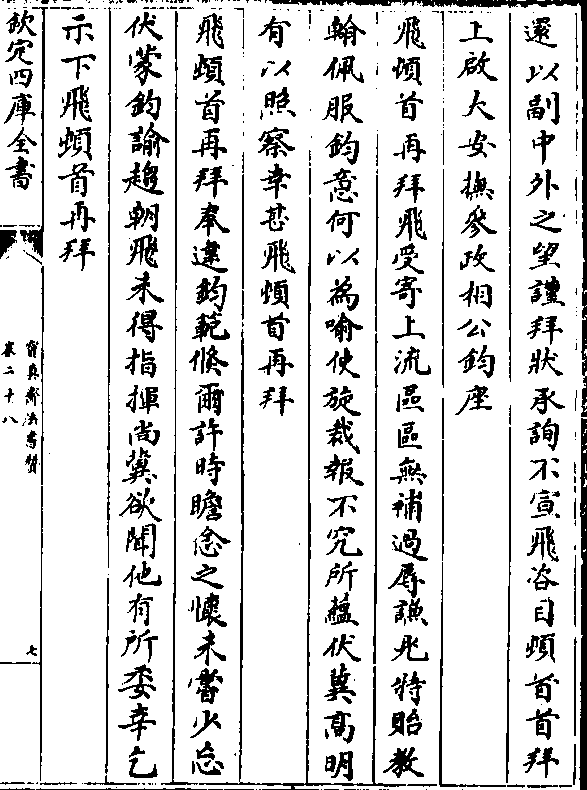 還以副中外之望謹拜狀承詢不宣飛咨目頓首首拜
上啟大安撫參政相公鈞座
飛頓首再拜飛受寄上流區區無補過辱謙光特貽教
翰佩服鈞意何以為喻使旋裁報不究所蘊伏冀高明
有以照察幸甚飛頓首再拜
飛頓首再拜奉違鈞範倏爾許時瞻念之懷未嘗少忘
伏蒙鈞諭趨朝飛未得指揮尚冀欲聞他有所委幸乞
示下飛頓首再拜
欽定四庫全書
寶真齋法書贊
卷二十八
七